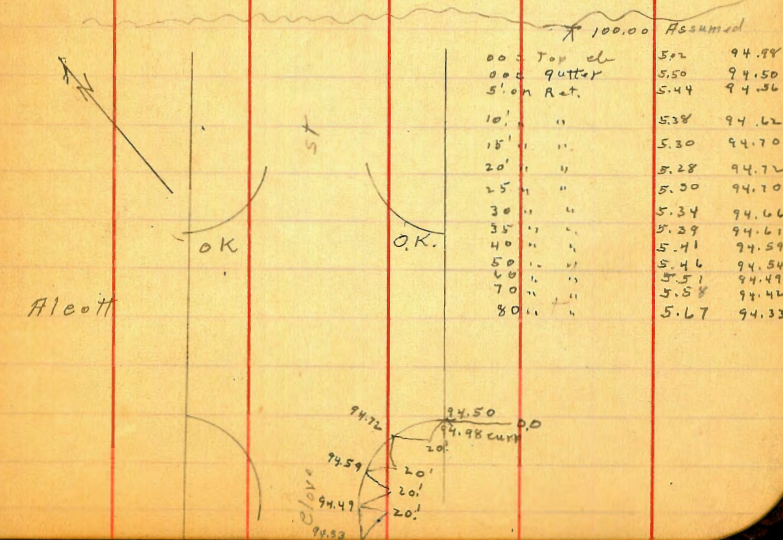 100.00 Assumed
00 = Top cb 5.02 94.98
00 = gutter 5.50 94.50
5' on Ret. 5.44 94.56
10' " " 5.38 94.62
15' " " 5.30 94.70
20' " " 5.28 94.72
25 " " 5.30 94.70
30 " " 5.34 94.66
35 " " 5.39 94.61
40 " " 5.41 94.59
50 " " 5.46 94.54
60 " " 5.51 94.49
70 " " 5.58 94.42
80 " " 5.67 94.33
N
St
OK
O.K.
Alcott
94.50
94.72
0.0
94.98 curb
20'
94.59
20'
20'
94.49
20'
94.33